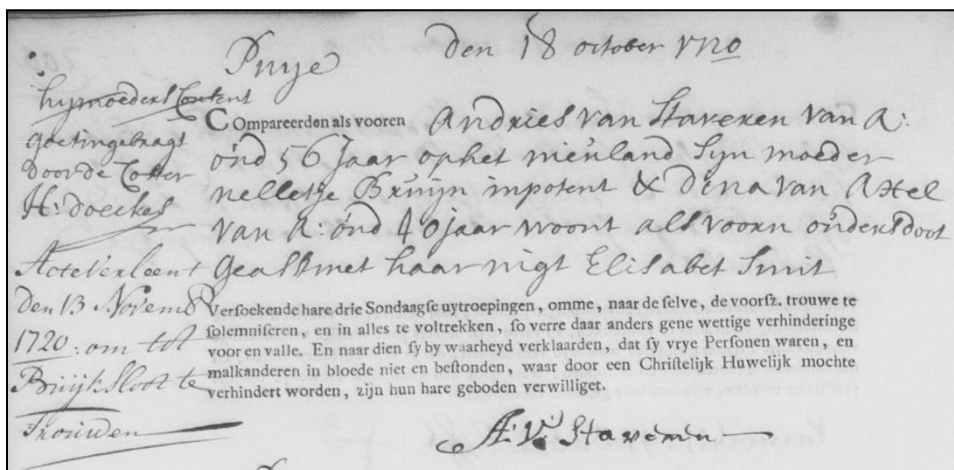 Puye
den 18 october 1720
hy moeders Consent
goet ingebragt
door de Coster
H: doeckes
Acte verleent
den 13 Novemb
1720: om tot
Bruijksloot te
Trouwen
COmpareerden als vooren Andries van Staveren van A:
oud 56 Jaar op het nieuland Syn moeder
nelletje Bruijn inpotent & dina van Axel
van A: oud 40 jaar woont als voorn ouders doot
geass met haar nigt Elisabet Smit
Versoekende hare drie Sondaagse uytroepingen, omme, naar de selve, de voorsz. trouwe te
solemniseren, en in alles te voltrekken, so verre daar anders gene wettige verhinderinge
voor en valle. En naar dien sy by waarheyd verklaarden, dat sy vrye Personen waren, en
malkanderen in bloede niet en bestonden, waar door een Christelijk Huwelijk mochte
verhindert worden, zijn hun hare geboden verwilliget.
A: V: Staveren